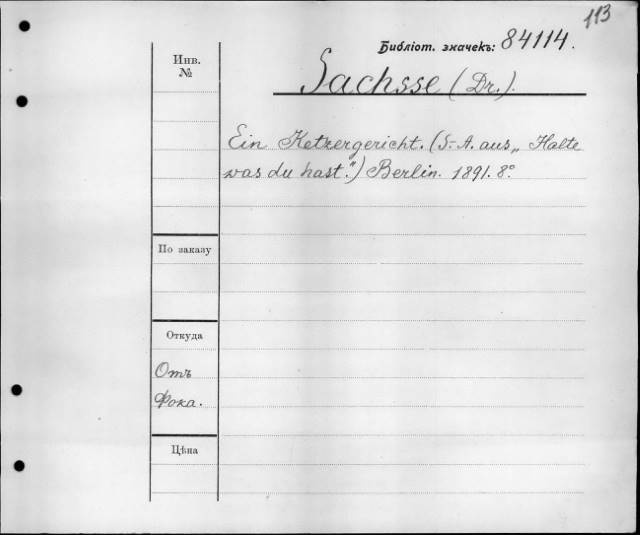 113
Библіот. значекъ: 84114.
Инв.
№
Sachsse (Dr.).
Ein Ketzergericht. (S.-A. aus „Halte
was du hast.") Berlin. 1891. 8°.
По заказу
Откуда
Отъ
Фока.
Цѣна